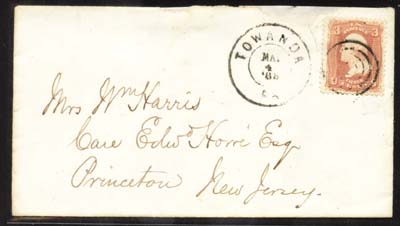 TOWANDA
MA.
4
3
3
Mrs Wm Harris
Care Edwd Howe Esq
Princeton New Jersey.